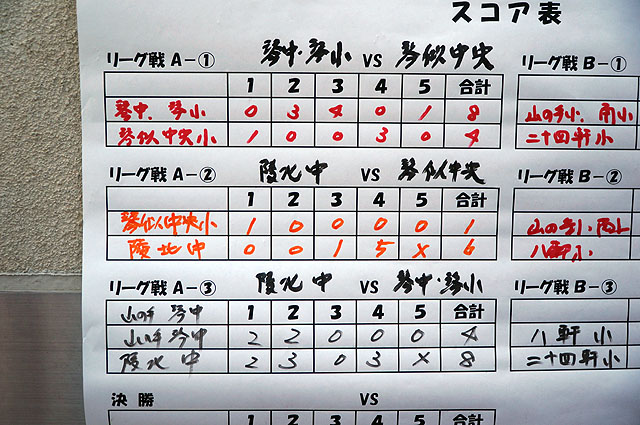 スコア表
リーグ戦 A-① 琴中・琴小 VS 琴似中央
1 2 3 4 5 合計
琴中、琴小 0 3 4 0 1 8
琴似中央小 1 0 0 3 0 4
リーグ戦 A-② 陵北中 VS 琴似中央
1 2 3 4 5 合計
琴似中央小 1 0 0 0 0 1
陵北中 0 0 1 5 X 6
リーグ戦 A-③ 陵北中 VS 琴中・琴小
山の手 琴中 1 2 3 4 5 合計
山の手 琴中 2 2 0 0 0 4
陵北中 2 3 0 3 X 8
決勝 VS
1 2 3 4 5 合計
リーグ戦 B-①
山の手小、
二十四軒小
リーグ戦 B-②
山の手小
八軒小
リーグ戦 B-③
八軒小
二十四軒小